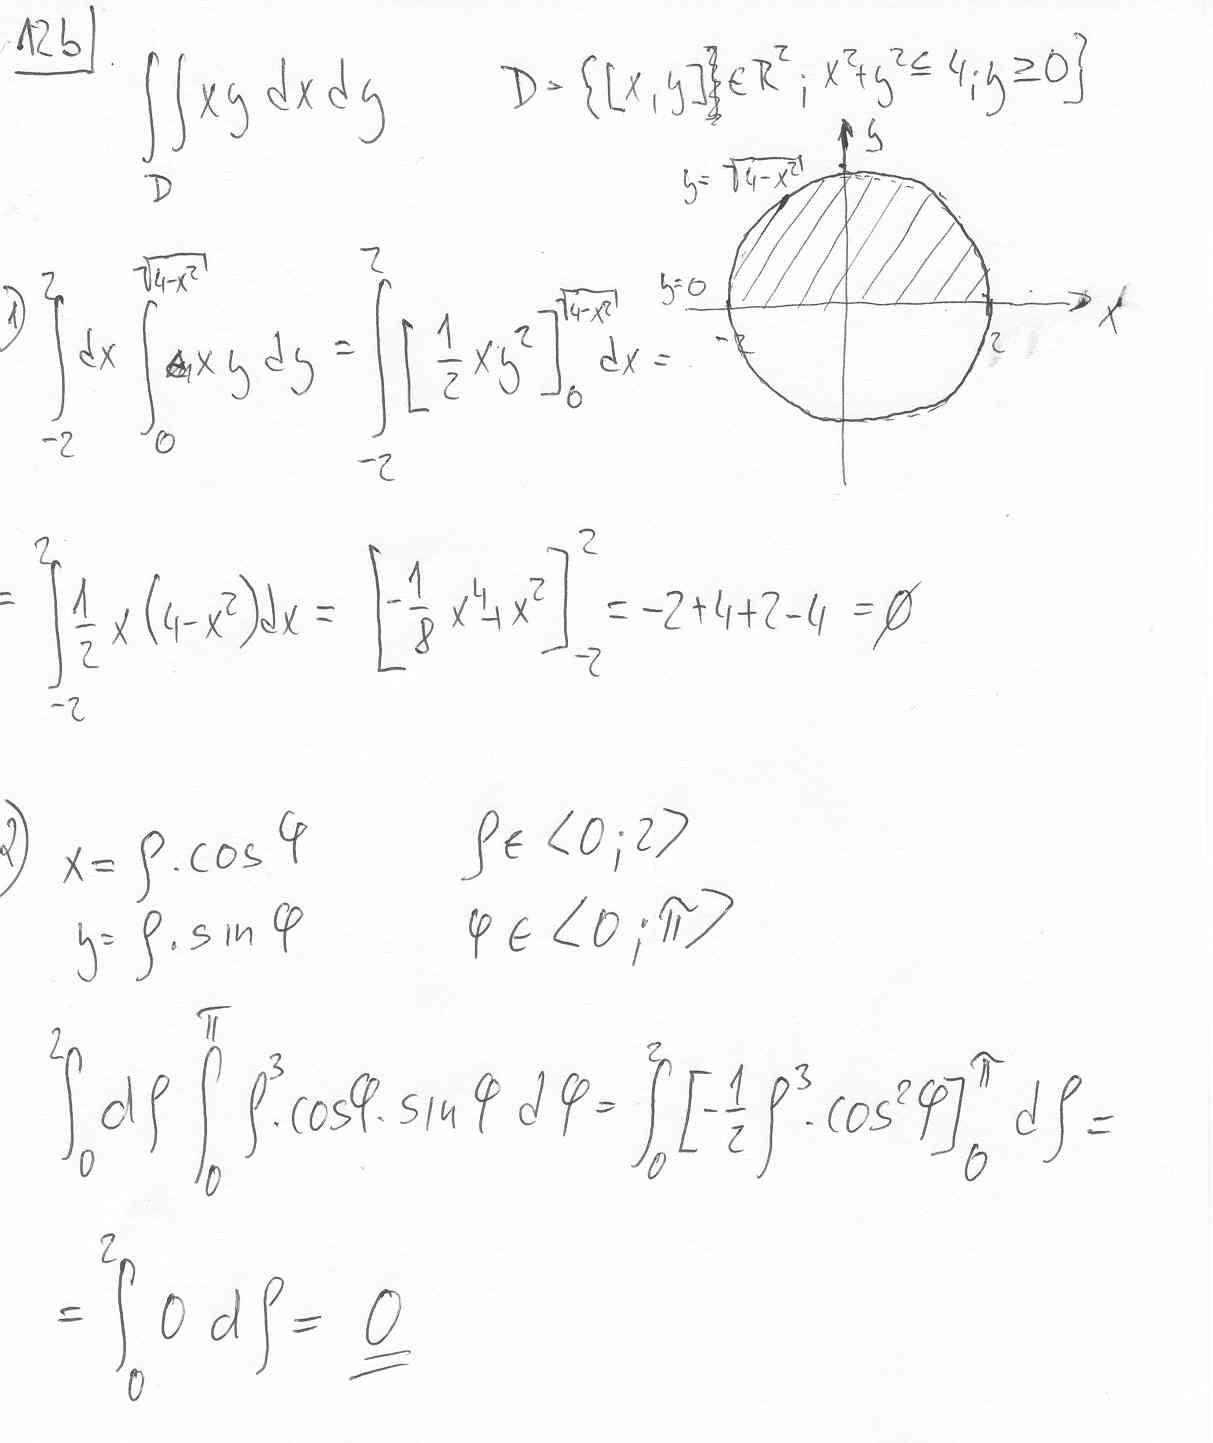 12b
∬_D xy dx dy    D = {[x,y] ∈ ℝ²; x²+y² ≤ 4; y ≥ 0}
y
y = √(4-x²)
y=0
x
-2
2
1) ∫_{-2}^{2} dx ∫_0^{√(4-x²)} xy dy = ∫_{-2}^{2} [1/2 xy²]_0^{√(4-x²)} dx =
= ∫_{-2}^{2} 1/2 x (4-x²) dx = [-1/8 x⁴ + x²]_{-2}^{2} = -2+4+2-4 = 0
2) x = ρ.cos φ    ρ ∈ <0;2>
y = ρ.sin φ    φ ∈ <0;π>
∫_0^2 dρ ∫_0^π ρ³.cosφ.sin φ dφ = ∫_0^2 [-1/2 ρ³.cos²φ]_0^π dρ =
= ∫_0^2 0 dρ = 0